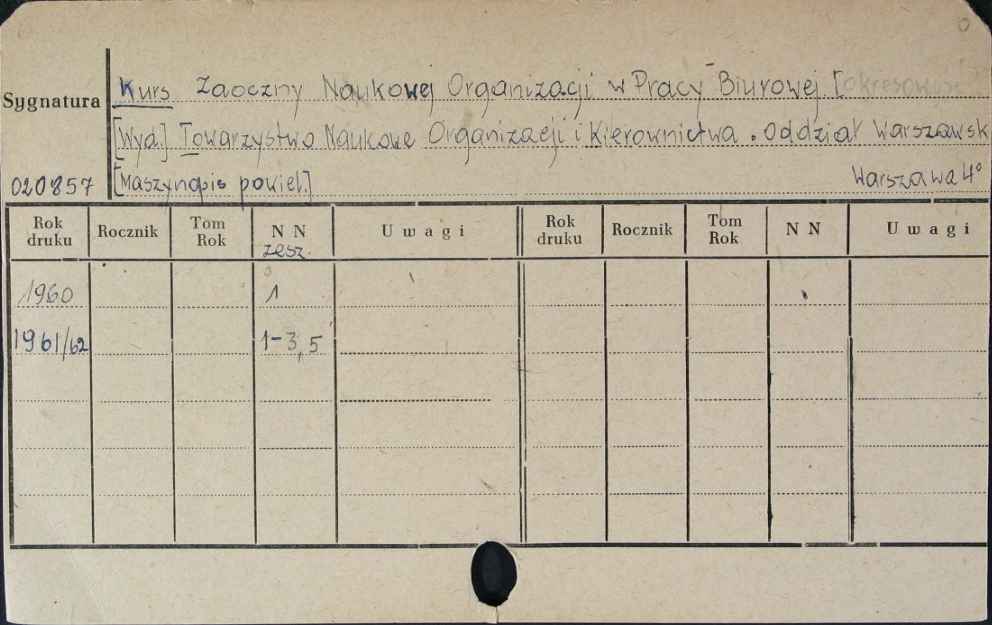 Kurs Zaoczny Naukowej Organizacji w Pracy Biurowej [
Sygnatura
[Wyd.] Towarzystwo Naukowe Organizacji i Kierownictwa. Oddział Warszawsk
020857 [Maszynopis powiel.] Warszawa 4°
Rok druku Rocznik Tom Rok N N zesz. Uwagi Rok druku Rocznik Tom Rok N N Uwagi
1960 1
1961/62 1-3,5